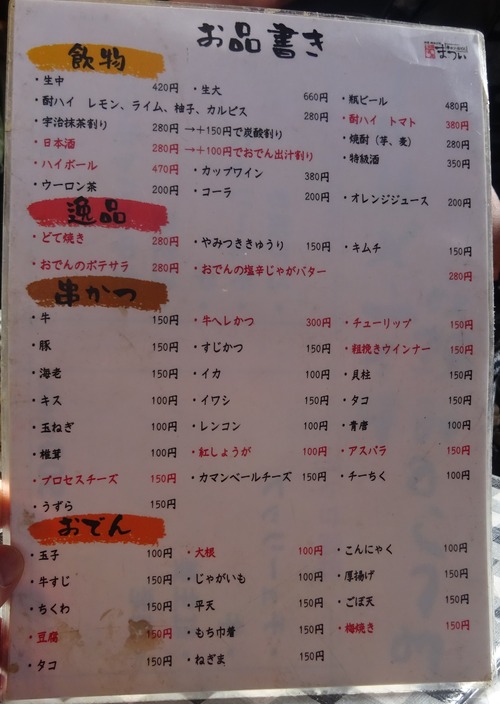 お品書き
まつい
飲物
・生中 420円 ・生大 660円 ・瓶ビール 480円
・酎ハイ レモン、ライム、柚子、カルピス 280円 ・酎ハイ トマト 380円
・宇治抹茶割り 280円 →+150円で炭酸割り ・焼酎(芋、麦) 280円
・日本酒 280円 →+100円でおでん出汁割り ・特級酒 350円
・ハイボール 470円 ・カップワイン 380円
・ウーロン茶 200円 ・コーラ 200円 ・オレンジジュース 200円
逸品
・どて焼き 280円 ・やみつききゅうり 150円 ・キムチ 150円
・おでんのポテサラ 280円 ・おでんの塩辛じゃがバター 280円
串かつ
・牛 150円 ・牛ヘレかつ 300円 ・チューリップ 150円
・豚 150円 ・すじかつ 150円 ・粗挽きウインナー 150円
・海老 150円 ・イカ 100円 ・貝柱 150円
・キス 100円 ・イワシ 150円 ・タコ 150円
・玉ねぎ 100円 ・レンコン 100円 ・青唐 100円
・椎茸 100円 ・紅しょうが 100円 ・アスパラ 150円
・プロセスチーズ 150円 ・カマンベールチーズ 150円 ・チーちく 100円
・うずら 150円
おでん
・玉子 100円 ・大根 100円 ・こんにゃく 100円
・牛すじ 150円 ・じゃがいも 100円 ・厚揚げ 150円
・ちくわ 150円 ・平天 150円 ・ごぼ天 150円
・豆腐 150円 ・もち巾着 150円 ・梅焼き 150円
・タコ 150円 ・ねぎま 150円